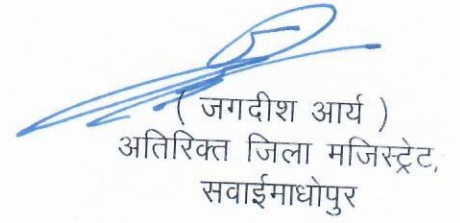 ( जगदीश आर्य )
अतिरिक्त जिला मजिस्ट्रेट,
सवाईमाधोपुर